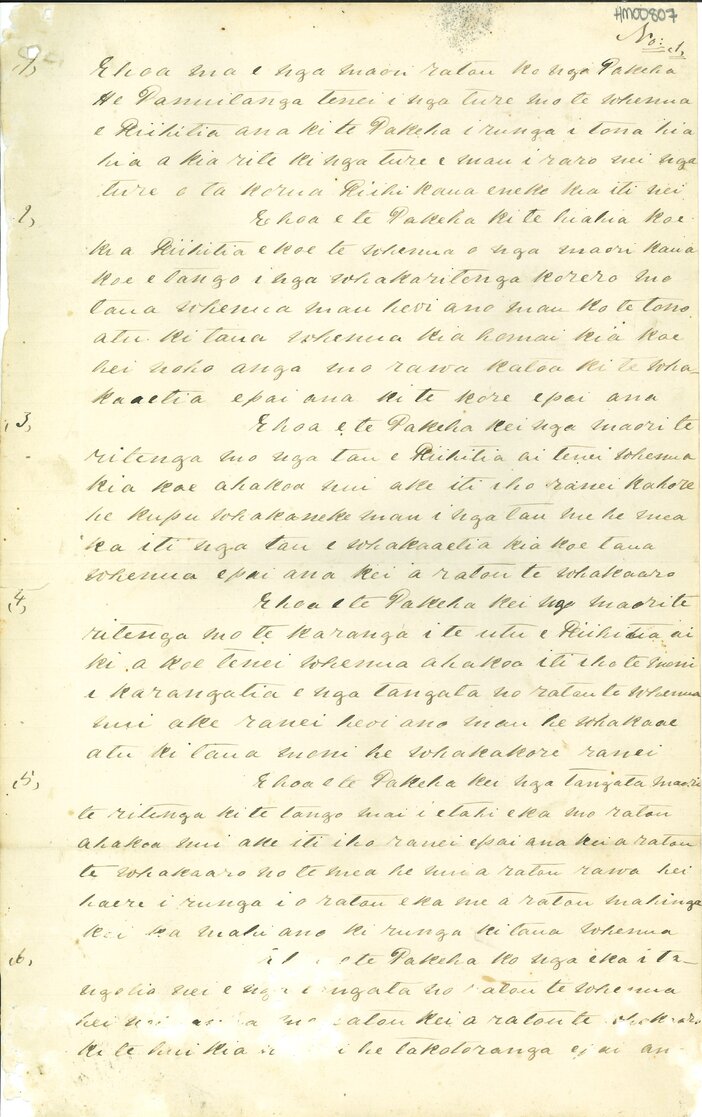 HM00807
No: 1,
1, Ehoa ma e nga maori ratou ko nga Pakeha
He Panuitanga tenei i nga ture mo te whenua
e Riihitia ana ki te Pakeha i runga i tona hia
hia a kia rite ki nga ture e mau i raro nei nga
ture o ta korua Riihi kaua eneke kia iti nei
2, Ehoa e te Pakeha ki te hiahia koe
kia Riihitia e koe te whenua o nga maori kaua
koe e tango i nga whakaritenga korero mo
taua whenua mau heoi ano mau ko te tono
atu ki taua whenua kia homai kia koe
hei noho anga mo rawa katoa ki te wha-
kaaetia epai ana ki te kore epai ana
3, Ehoa e te Pakeha kei nga maori te
ritenga mo nga tau e Riihitia ai tenei whenua
kia koe ahakoa nui ake iti iho ranei kahore
he kupu whakaneke mau i nga tau me he mea
ka iti nga tau e whakaaetia kia koe taua
whenua epai ana kei a ratou te whakaaro
4, Ehoa e te Pakeha kei nga maori te
ritenga mo te karanga i te utu e Riihitia ai
ki a koe tenei whenua ahakoa iti iho te moni
e karangatia e nga tangata no ratou te whenua
nui ake ranei heoi ano mau he whakaae
atu ki taua moni he whakakore ranei
5, Ehoa e te Pakeha kei nga tangata maori
te ritenga ki te tango mai i etahi eka mo ratou
ahakoa nui ake iti iho ranei epai ana kei a ratou
te whakaaro no te mea he nui a ratou rawa hei
haere i runga i o ratou eka me a ratou mahinga
kai ka mahi ano ki runga ki taua whenua
6, e te Pakeha ko nga eka i ta-
ngohia nei e nga tangata no ratou te whenua
hei mo ratou kei a ratou te whakaaro
ki te hui kia i he takotoranga epai an-